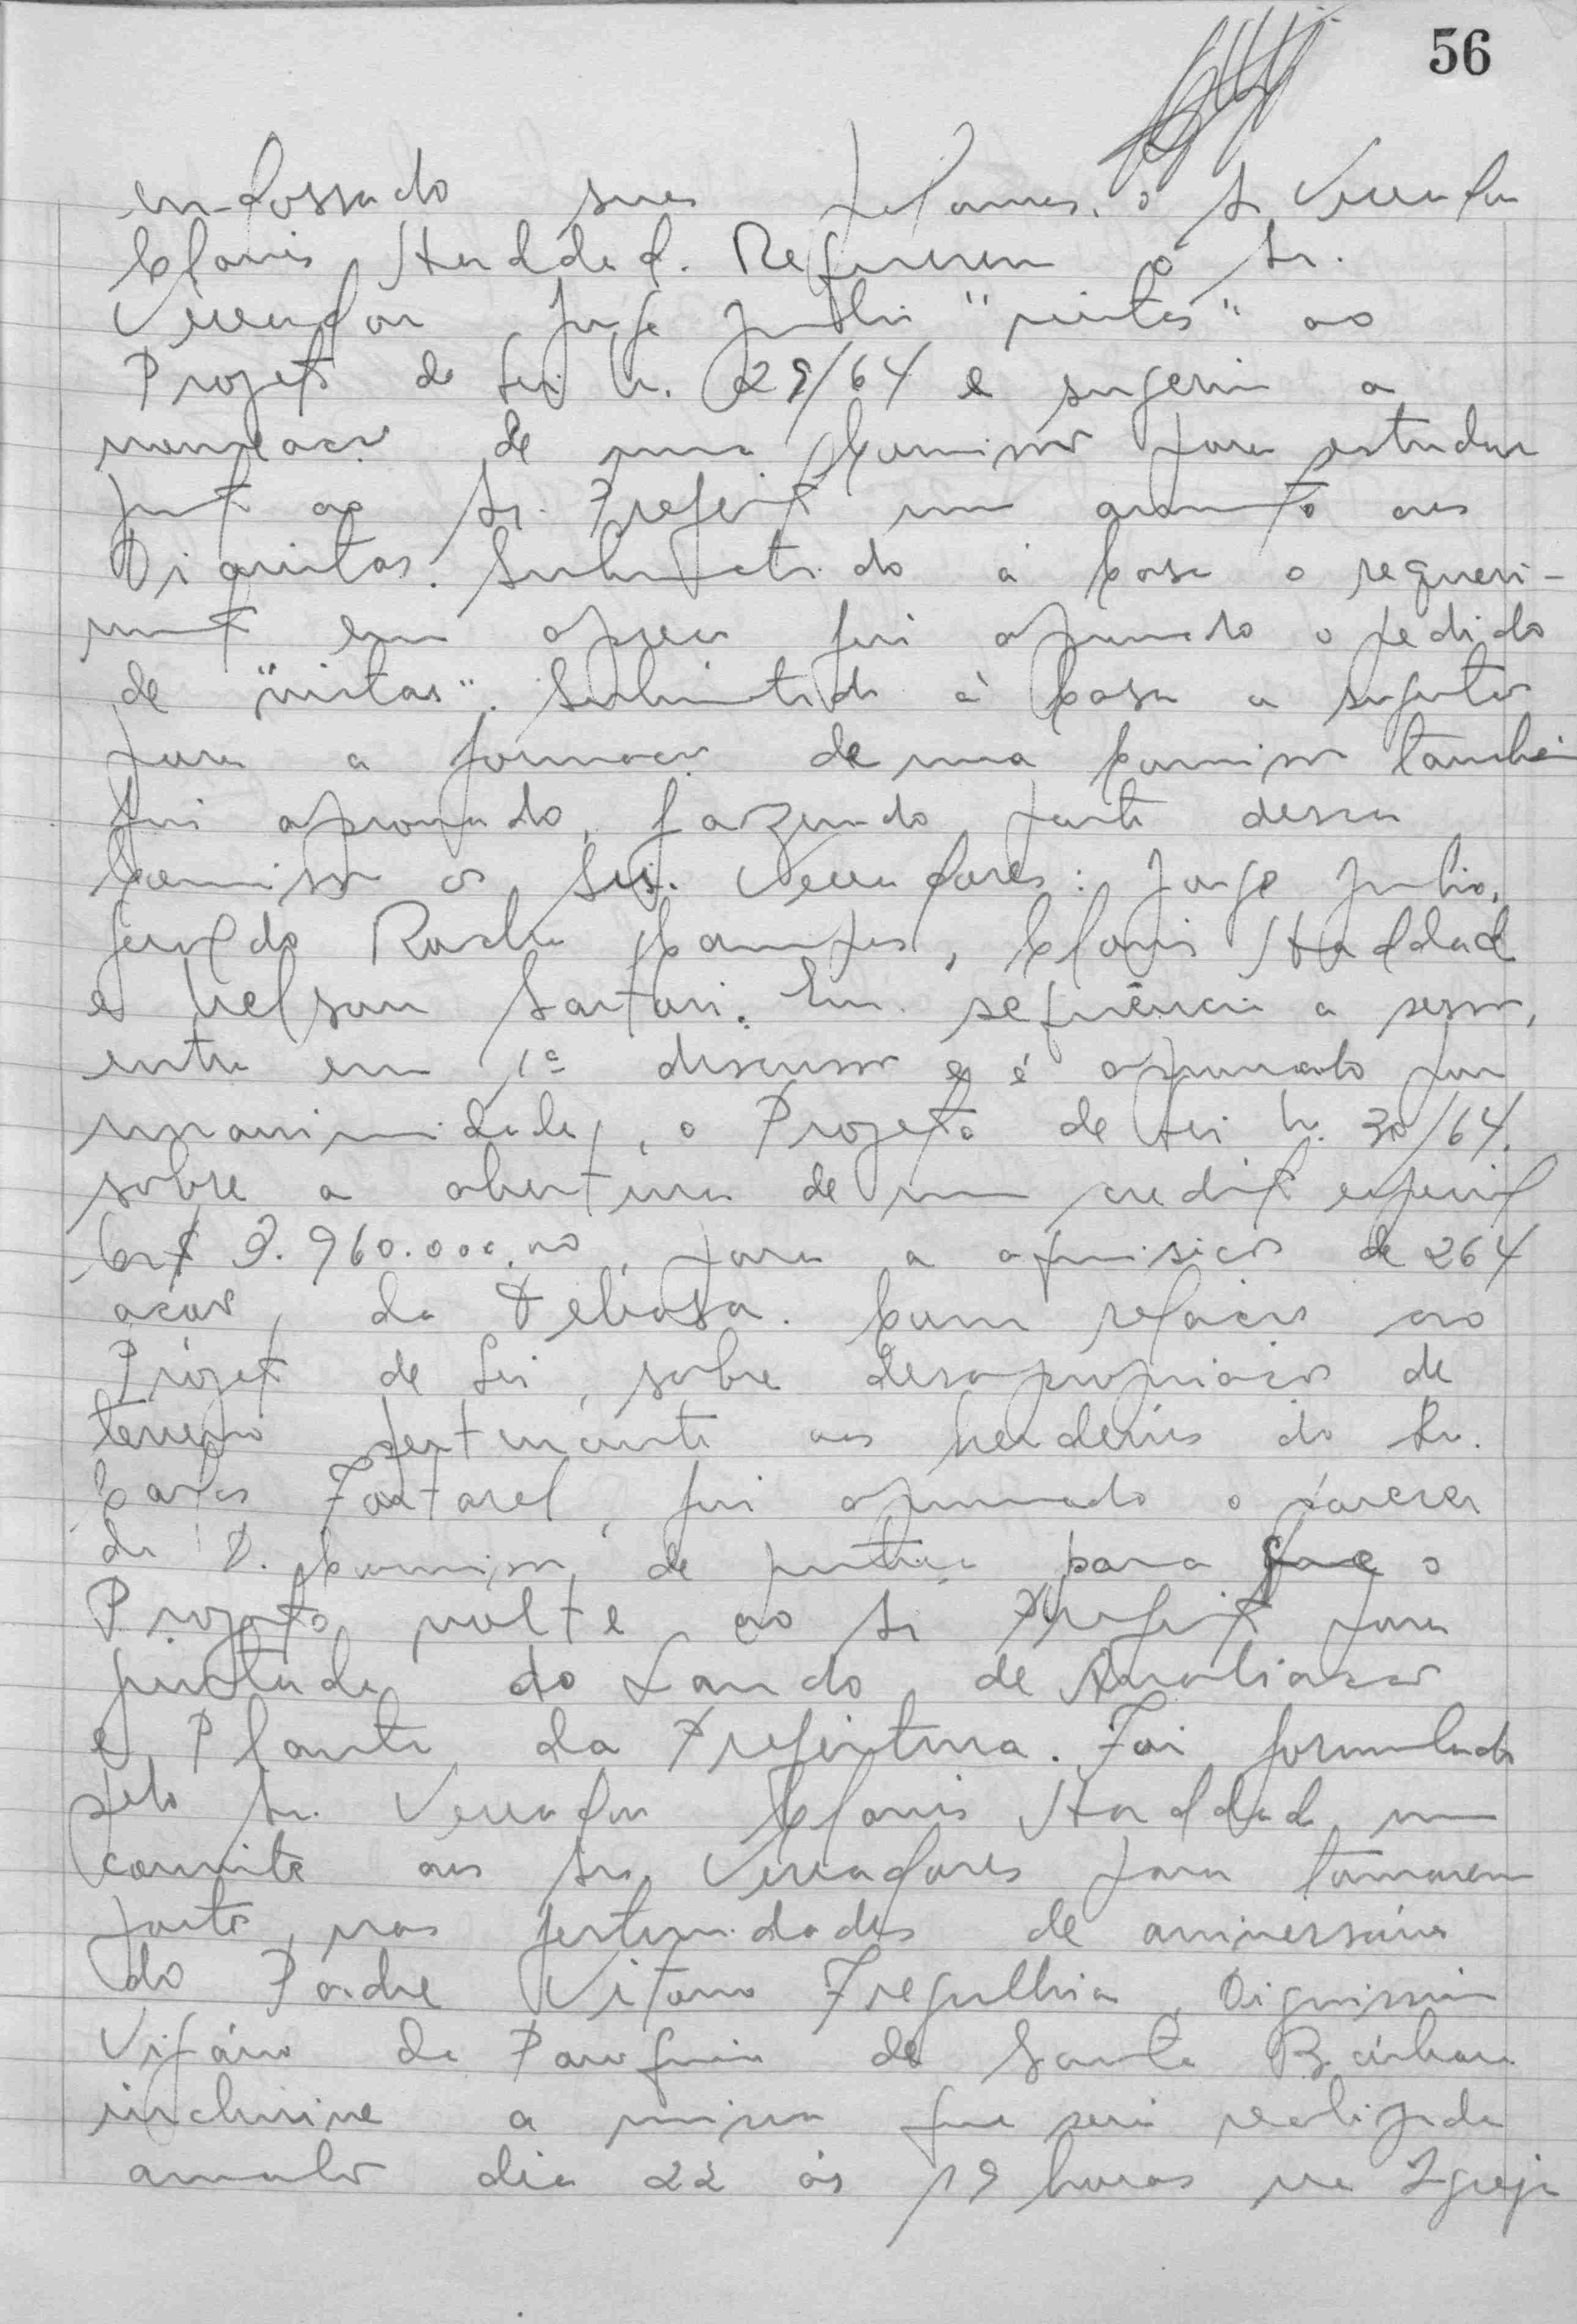 56
endossado suas palavras, o Sr Vereador
Clovis Haddad. Requereu o Sr.
Vereador Jorge Julio "vistas" ao
Projeto de Lei n. 29/64 e sugeriu a
nomeação de uma Comissão para estudar
junto ao Sr. Prefeito um aumento aos
Diaristas. Submetido à Casa o requeri-
mento em apreço foi aprovado o pedido
de "vistas". Submetido à Casa a sugestão
para a formação de uma Comissão também
foi aprovado, fazendo parte dessa
Comissão os Srs. Vereadores: Jorge Julio,
Geraldo Rocha Campos, Clovis Haddad
e Nelson Sartori. Em sequência a sessão,
entra em 1ª discussão e é aprovado por
unanimidade, o Projeto de Lei n. 30/64.
sobre a abertura de um credito especial
Cr$ 3.960.000,00, para a aquisição de 264
ações da Telebasa. Com relação ao
Projeto de Lei, sobre desapropriação de
terreno pertencente aos herdeiros do Sr.
Carlos, foi aprovado o parecer
da D. Comissão de Justiça para que o
Projeto volte ao Sr Prefeito para
juntada do Laudo de Avaliação
e Planta da Prefeitura. Foi formulado
pelo Sr. Vereador Clovis Haddad um
convite aos Srs Vereadores para tomarem
parte nas festividades de aniversário
do Padre Vitorio Fregulhia, Dignissimo
Vigário da Paroquia de Santa Bárbara
inclusive a missa que será realizada
amanhã dia 22 às 19 horas na Igreja